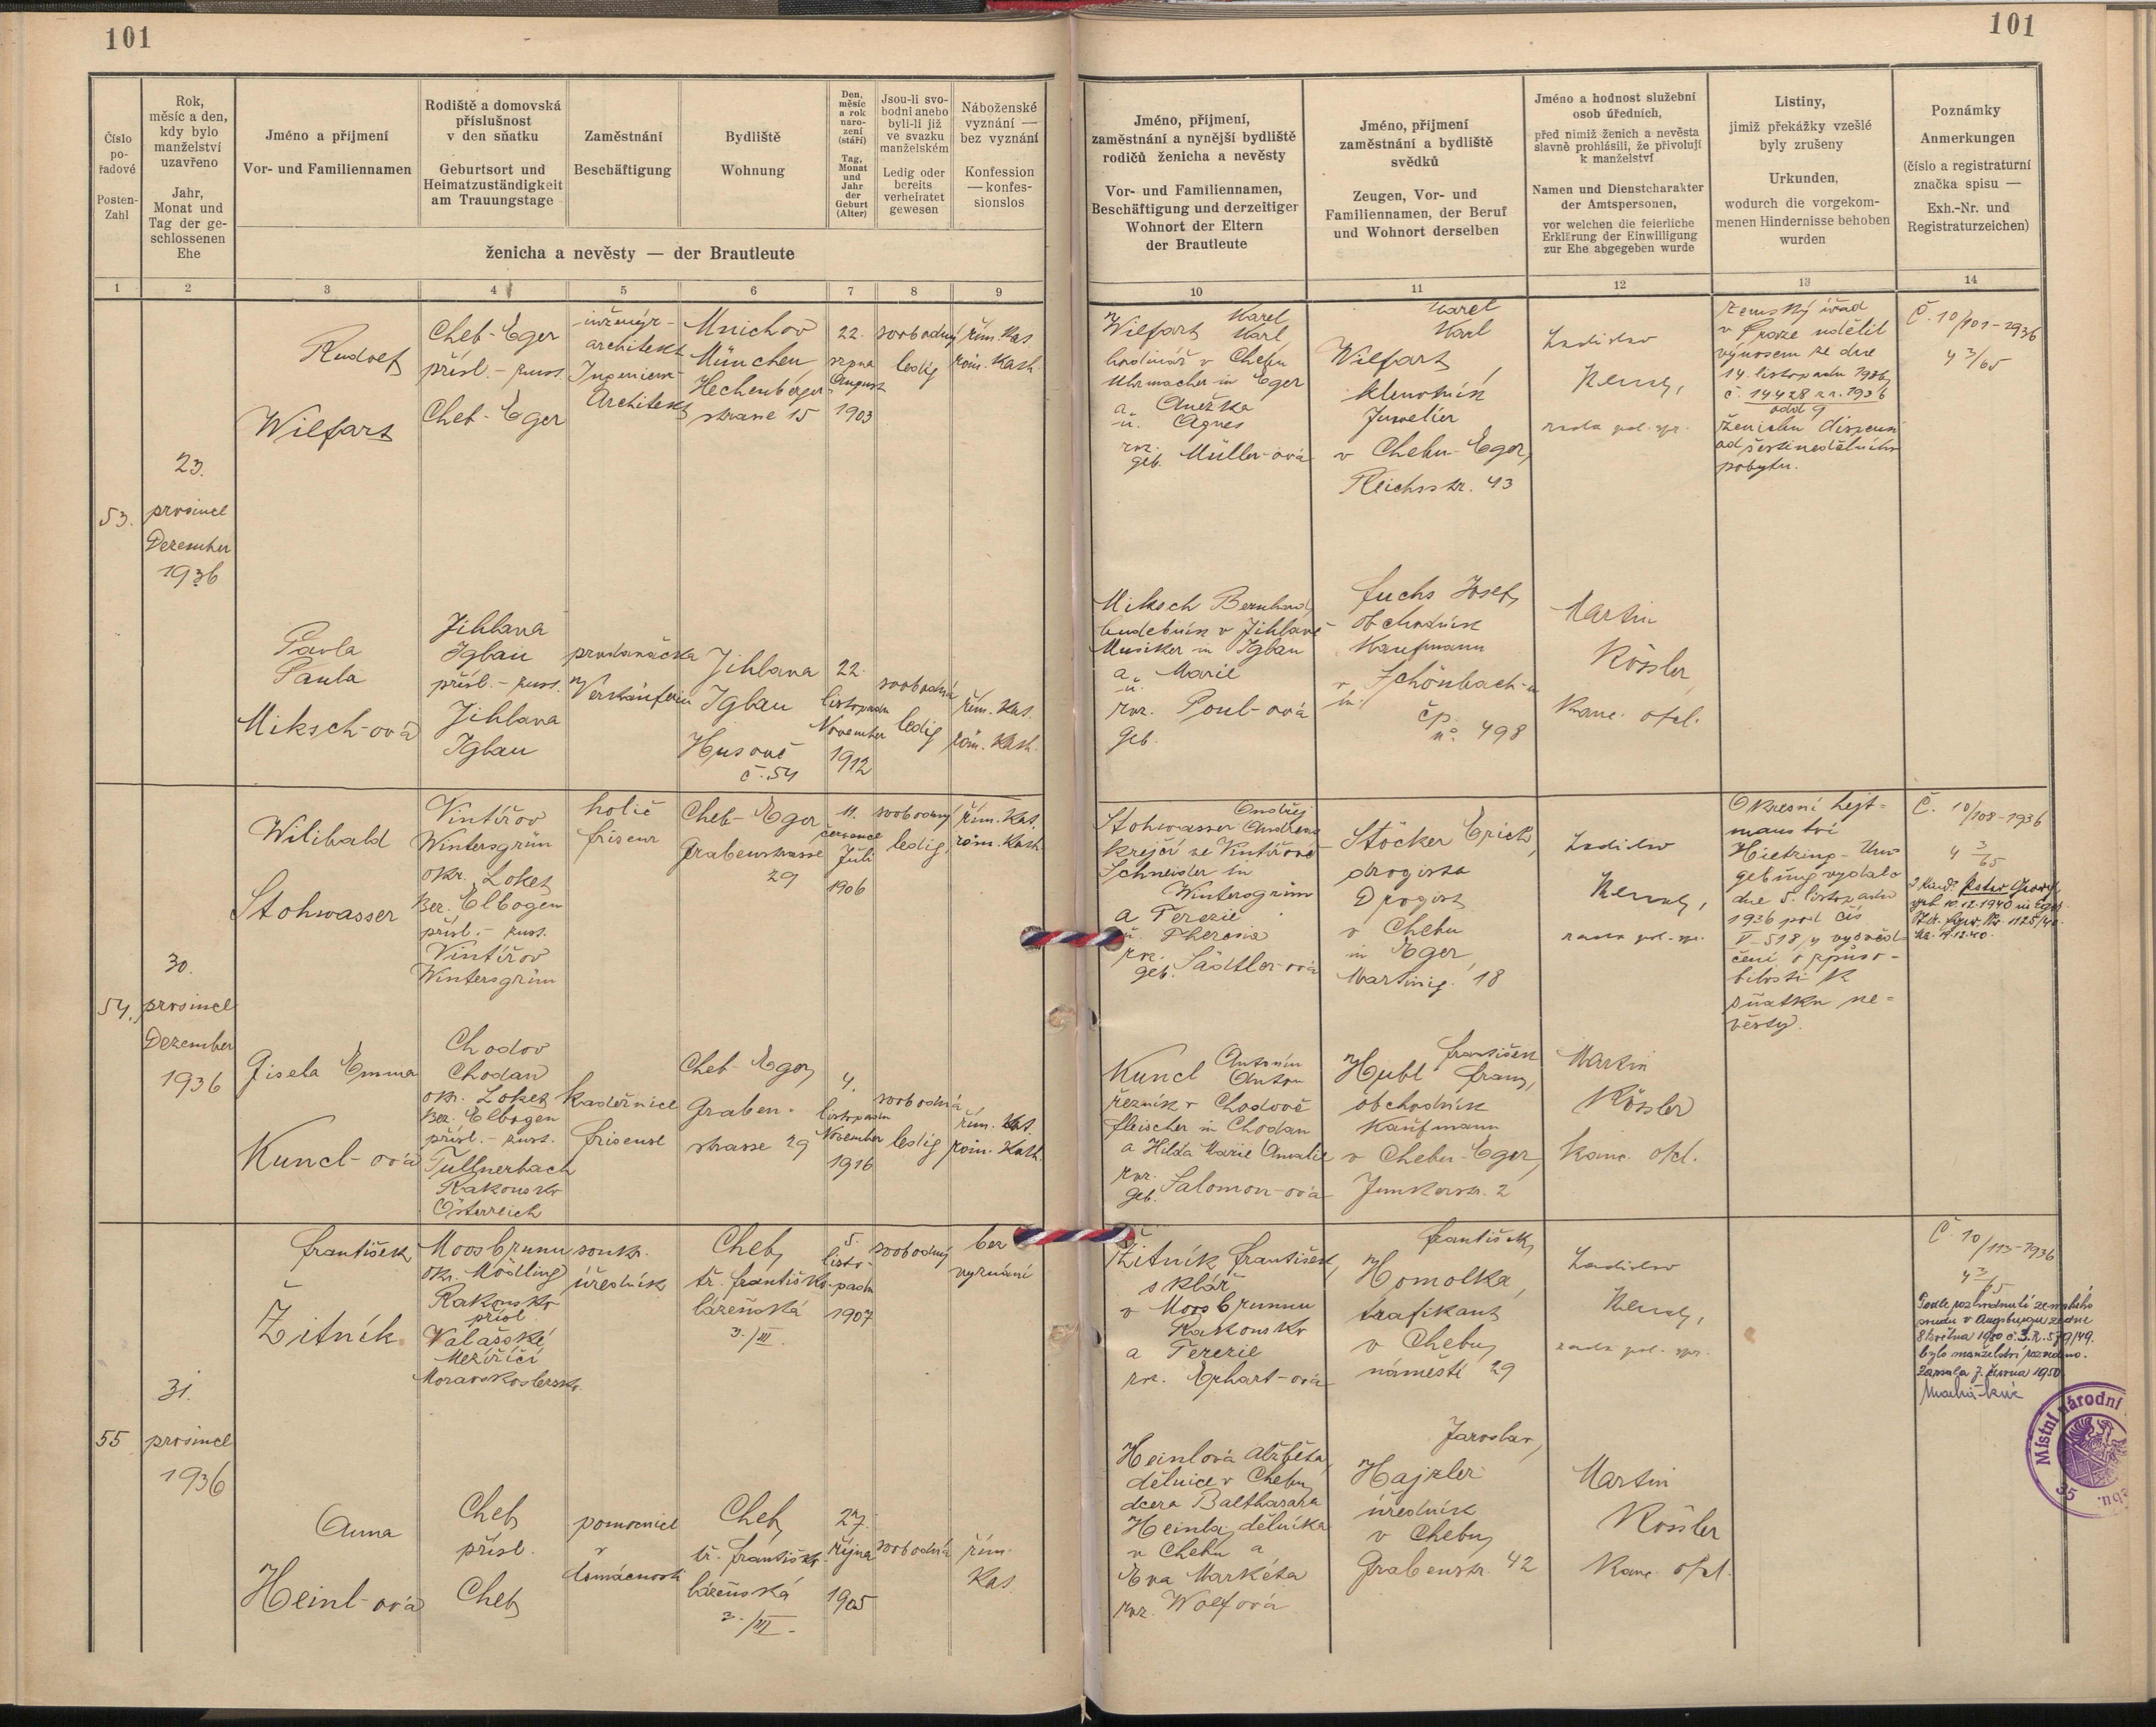 101
101
Číslo
po-
řadové
Posten-
Zahl
Rok,
měsíc a den,
kdy bylo
manželství
uzavřeno
Jahr,
Monat und
Tag der ge-
schlossenen
Ehe
Jméno a příjmení
Vor- und Familiennamen
Rodiště a domovská
příslušnost
v den sňatku
Geburtsort und
Heimatzuständigkeit
am Trauungstage
Zaměstnání
Beschäftigung
Bydliště
Wohnung
Den,
měsíc
a rok
naro-
zení
(stáří)
Tag,
Monat
und
Jahr
der
Geburt
(Alter)
Jsou-li svo-
bodni anebo
byli-li již
ve svazku
manželském
Ledig oder
bereits
verheiratet
gewesen
Náboženské
vyznání —
bez vyznání
Konfession
— konfes-
sionslos
ženicha a nevěsty — der Brautleute
Jméno, příjmení,
zaměstnání a nynější bydliště
rodičů ženicha a nevěsty
Vor- und Familiennamen,
Beschäftigung und derzeitiger
Wohnort der Eltern
der Brautleute
Jméno, příjmení
zaměstnání a bydliště
svědků
Zeugen, Vor- und
Familiennamen, der Beruf
und Wohnort derselben
Jméno a hodnost služební
osob úředních,
před nimiž ženich a nevěsta
slavně prohlásili, že přivolují
k manželství
Namen und Dienstcharakter
der Amtspersonen,
vor welchen die feierliche
Erklärung der Einwilligung
zur Ehe abgegeben wurde
Listiny,
jimiž překážky vzešlé
byly zrušeny
Urkunden,
wodurch die vorgekom-
menen Hindernisse behoben
wurden
Poznámky
Anmerkungen
(číslo a registraturní
značka spisu —
Exh.-Nr. und
Registraturzeichen)
1 2 3 4 5 6 7 8 9 10 11 12 13 14
53.
23.
prosince
Dezember
1936
Rudolf
Wilfart
Cheb-Eger
přísl. - zust.
Cheb-Eger
inženýr-
architekt
Ingenieur
Architekt
Mnichov
München
Hechenberger
strasse 15
22.
srpna
August
1903
svobodný
ledig
řím. kat.
röm. kath.
Karel
Wilfart Karl
hodinář v Chebu
Uhrmacher in Eger
a Anežka
u. Agnes
roz.
geb. Müller-ová
Karel
Karl
Wilfart,
klenotník
Juwelier
v Chebu-Eger,
Reichsstr. 43
Ladislav
rada pol. spr.
Zemský úřad
v Praze udělil
výnosem ze dne
14. listopadu 1936
č. 14428 z r. 1936
odd 9
ženichu dispens
od šestinedělního
pobytu.
Č. 10/101-1936
4 3/65
Pavla
Paula
Miksch-ová
Jihlava
Iglau
přísl. - zust.
Jihlava
Iglau
prodavačka
Verkäuferin
Jihlava
Iglau
Husově
č. 54
22.
listopadu
November
1912
svobodná
ledig
řím. kat.
röm. kath.
Miksch Bernhard
hudebník v Jihlavě
Musiker in Iglau
a Marie
u.
roz. Poul-ová
geb.
Fuchs Josef,
obchodník
Kaufmann
v Schönbach-u
in
čp.
no. 498
Martin
Rössler,
kanc. ofcl.
54.
30.
prosince
Dezember
1936
Wilibald
Stohwasser
Vintířov
Wintersgrün
okr. Loket
Bez. Elbogen
přísl. - zust.
Vintířov
Wintersgrün
holič
friseur
Cheb-Eger
Grabenstrasse
29
11.
července
Juli
1906
svobodný
ledig
řím. kat.
röm. kath.
Ondřej
Stohwasser Andreas
krejčí ve Vintířově
Schneider in
Wintersgrün
a Terezie
u. Theresia
roz.
geb. Sädtler-ová
Stöcker Erich,
drogista
Drogist
v Chebu
in Eger,
Martinig. 18
Ladislav
rada pol. spr.
Okresní hejt-
manství
Hietzing-Um-
gebung vydalo
dne 5. listopadu
1936 pod čís
V-518/4 vysvěd-
čení o způso-
bilosti k
sňatku ne-
věsty.
Č. 10/108-1936
4 3/65
geb. 10.12.1940 in Eger
Nr. 1125/40
Gisela Emma
Kuncl-ová
Chodov
Chodau
okr. Loket
Bez. Elbogen
přísl. - zust.
Tullnerbach
Rakousko
Österreich
kadeřnice
friseuse
Cheb-Eger
Graben-
strasse 29
4.
listopadu
November
1916
svobodná
ledig
řím. kat.
röm. kath.
Antonín
Kuncl Anton
řezník v Chodově
Fleischer in Chodau
a Hilda Marie Amalie
roz.
geb. Salomon-ová
František
Hubl Franz,
obchodník
Kaufmann
v Chebu-Eger,
Junkerstr. 2
Martin
Rössler
kanc. ofcl.
55
31.
prosince
1936
František
Žitník
Moosbrunn
okr. Mödling
Rakousko
přísl.
Valašské
Meziříčí
Moravskoslezsko
soukr.
úředník
Cheb,
tř. Františko-
lázeňská
3./III.
5.
listo-
padu
1907
svobodný
bez
vyznání
Žitník František,
sklář
v Moosbrunnu
Rakousko
a Terezie
roz. Ephart-ová
František
Homolka,
trafikant
v Chebu,
náměstí 29
Ladislav
rada pol. spr.
Č. 10/113-1936
4 3/65
Podle rozhodnutí zemského
soudu v Augsburgu ze dne
8 května 1950 č. 3. R. 579/49.
bylo manželství rozvedeno.
Zapsala 7. června 1950
Místní národní
Anna
Heinl-ová
Cheb,
přísl.
Cheb
pomocnice
v
domácnosti
Cheb,
tř. Františko-
lázeňská
3./III.
27.
října
1905
svobodná
řím.
kat.
Heinlová Alžběta,
dělnice v Chebu
dcera Balthasara
Heinla, dělníka
v Chebu a
Eva Markéta
roz. Wolfová
Jaroslav,
Hajzler
úředník
v Chebu,
Grabenstr. 42
Martin
Rössler
kanc. ofcl.